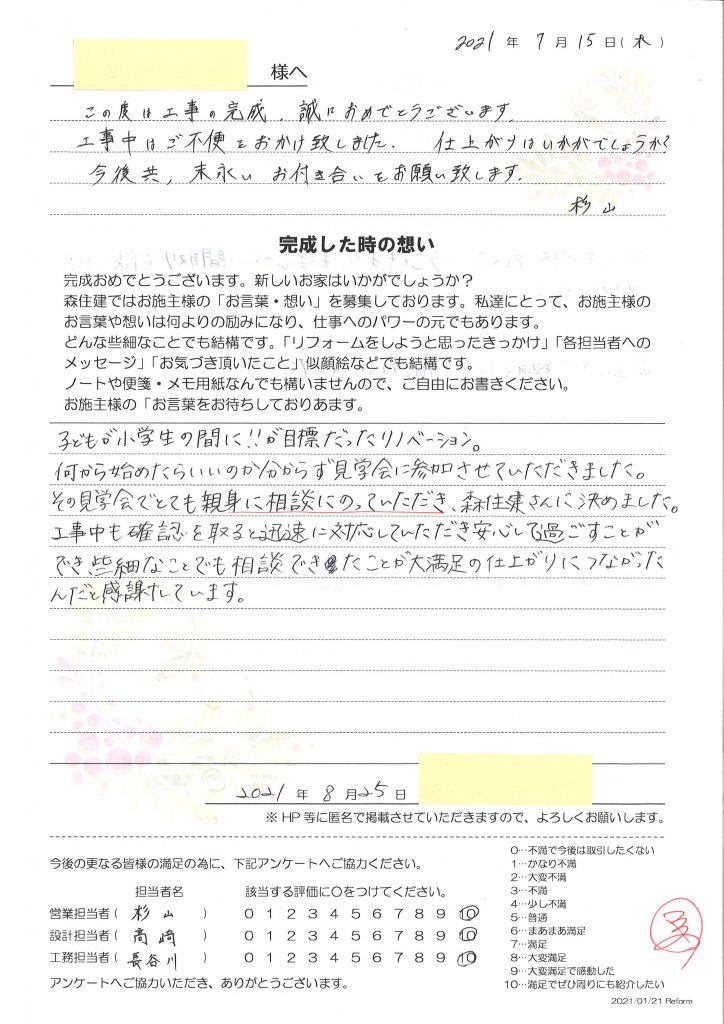 2021 年 7 月 15 日(木)
様へ
この度は工事の完成、誠におめでとうございます。
工事中はご不便をおかけ致しました. 仕上がりはいかがでしょうか?
今後共, 末永い お付き合いをお願い致します.
杉山
完成した時の想い
完成おめでとうございます。新しいお家はいかがでしょうか？
森住建ではお施主様の「お言葉・想い」を募集しております。私達にとって、お施主様の
お言葉や想いは何よりの励みになり、仕事へのパワーの元でもあります。
どんな些細なことでも結構です。「リフォームをしようと思ったきっかけ」「各担当者への
メッセージ」「お気づき頂いたこと」似顔絵などでも結構です。
ノートや便箋・メモ用紙なんでも構いませんので、ご自由にお書きください。
お施主様の「お言葉をお待ちしておりあます。
子どもが小学生の間に!!が目標だったリノベーション。
何から始めたらいいのか分からず見学会に参加させていただきました。
その見学会でとても親身に相談にのっていただき、森住建さんに決めました。
工事中も確認を取ると迅速に対応していただき安心して過ごすことが
でき、些細なことでも相談できたことが大満足の仕上がりにつながった
んだと感謝しています。
2021 年 8 月 25 日
※ HP 等に匿名で掲載させていただきますので、よろしくお願いします。
今後の更なる皆様の満足の為に、下記アンケートへご協力ください。
担当者名 該当する評価に○をつけてください。
営業担当者( 杉山 ) 0 1 2 3 4 5 6 7 8 9 10
設計担当者( 高崎 ) 0 1 2 3 4 5 6 7 8 9 10
工務担当者( 長谷川 ) 0 1 2 3 4 5 6 7 8 9 10
アンケートへご協力いただき、ありがとうございます。
0…不満で今後は取引したくない
1…かなり不満
2…大変不満
3…不満
4…少し不満
5…普通
6…まあまあ満足
7…満足
8…大変満足
9…大変満足で感動した
10…満足でぜひ周りにも紹介したい
2021/01/21 Reform